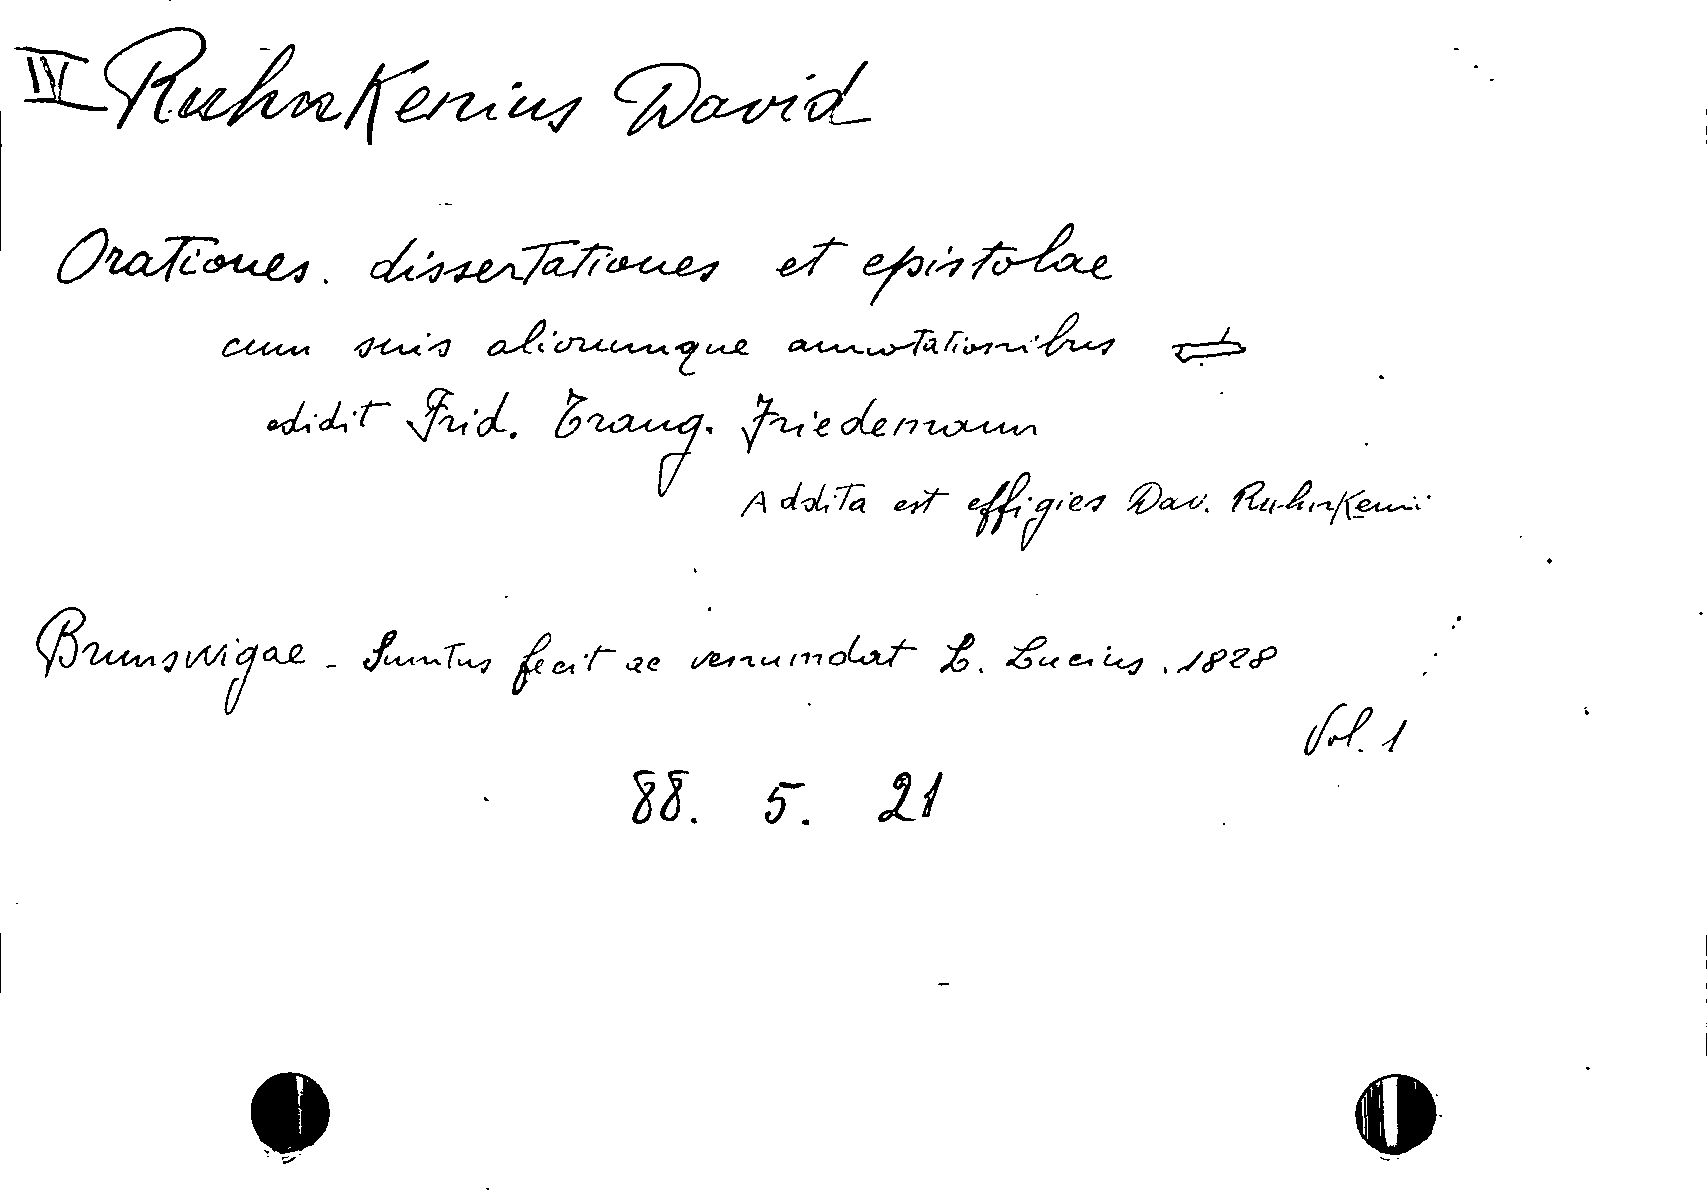 IV Ruhnkenius David
Orationes. dissertationes et epistolae
cum suis aliorumque annotationibus
edidit Frid. Traug. Friedemann
Addita est effigies Dav. Ruhnkenii
Brunsvigae - Sumtus fecit ac venumdat L. Lucius. 1828
Vol. 1
88. 5. 21